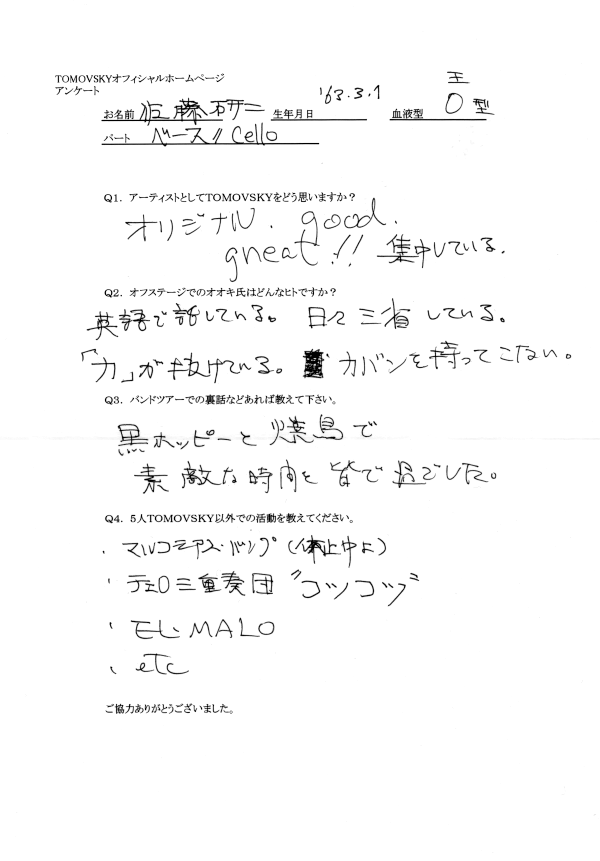 TOMOVSKYオフィシャルホームページ
アンケート
王
お名前 佐藤研二 生年月日 '63.3.1 血液型 O型
パート ベース // Cello
Q1. アーティストとしてTOMOVSKYをどう思いますか？
オリジナル. good.
great!! 集中している.
Q2. オフステージでのオオキ氏はどんなヒトですか？
英語で話している。 日々三省している。
「力」が抜けている。 カバンを持ってこない。
Q3. バンドツアーでの裏話などあれば教えて下さい。
黒ホッピーと焼鳥で
素敵な時間を皆で過ごした。
Q4. 5人TOMOVSKY以外での活動を教えてください。
・マルコシアス・バンプ (休止中よ)
・チェロ三重奏団 "コツコツ"
・EL・MALO
・etc
ご協力ありがとうございました。